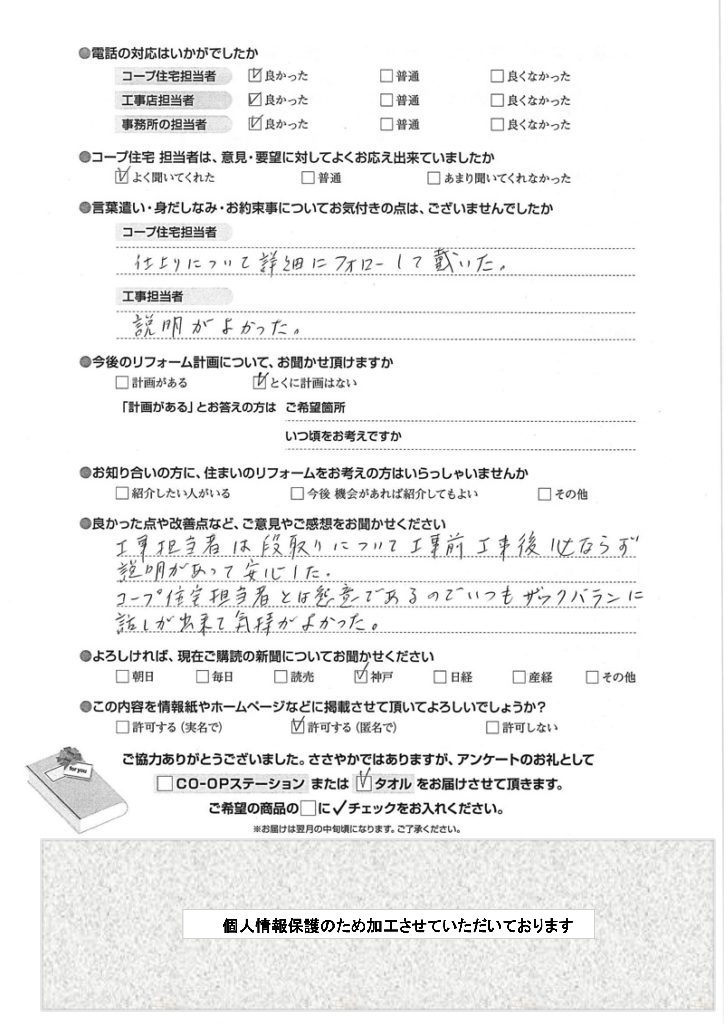 ●電話の対応はいかがでしたか
コープ住宅担当者 ☑良かった □普通 □良くなかった
工事店担当者 ☑良かった □普通 □良くなかった
事務所の担当者 ☑良かった □普通 □良くなかった
●コープ住宅 担当者は、意見・要望に対してよくお応え出来ていましたか
☑よく聞いてくれた □普通 □あまり聞いてくれなかった
●言葉遣い・身だしなみ・お約束事についてお気付きの点は、ございませんでしたか
コープ住宅担当者
仕上りについて詳細にフォローして戴いた。
工事担当者
説明がよかった。
●今後のリフォーム計画について、お聞かせ頂けますか
□計画がある ☑とくに計画はない
「計画がある」とお答えの方は ご希望箇所
いつ頃をお考えですか
●お知り合いの方に、住まいのリフォームをお考えの方はいらっしゃいませんか
□紹介したい人がいる □今後 機会があれば紹介してもよい □その他
●良かった点や改善点など、ご意見やご感想をお聞かせください
工事担当者は段取りについて工事前工事後必ならず
説明があって安心した。
コープ住宅担当者とは懇意であるのでいつもザックバランに
話しが出来て気持がよかった。
●よろしければ、現在ご購読の新聞についてお聞かせください
□朝日 □毎日 □読売 ☑神戸 □日経 □産経 □その他
●この内容を情報紙やホームページなどに掲載させて頂いてよろしいでしょうか?
□許可する(実名で) ☑許可する(匿名で) □許可しない
for you
ご協力ありがとうございました。ささやかではありますが、アンケートのお礼として
□CO-OPステーション または ☑タオル をお届けさせて頂きます。
ご希望の商品の□に✓チェックをお入れください。
※お届けは翌月の中旬頃になります。ご了承ください。
個人情報保護のため加工させていただいております